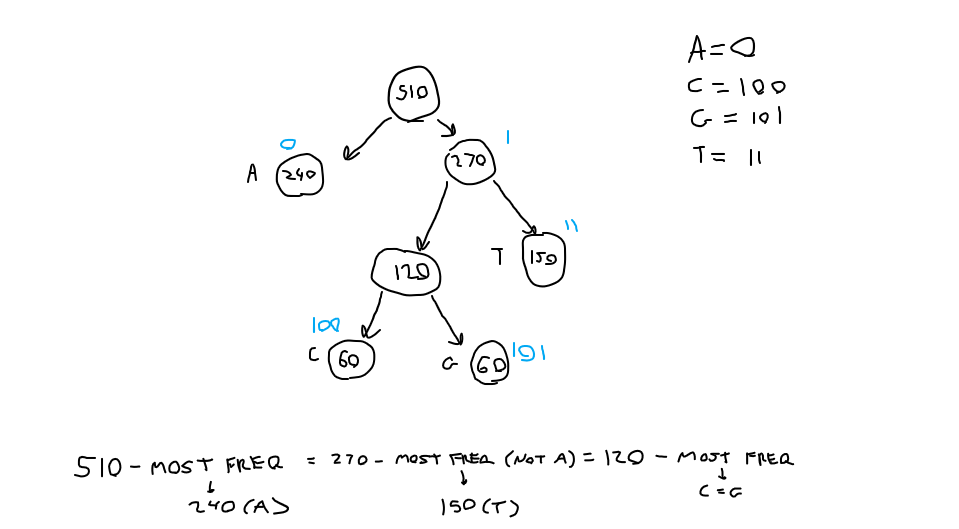 A=0
C=100
G=101
T=11
510
0
1
A 240
270
11
T 150
120
100
C 60
G 60 101
510 - MOST FREQ = 270 - MOST FREQ (NOT A) = 120 - MOST FREQ
240 (A) 150 (T) C=G